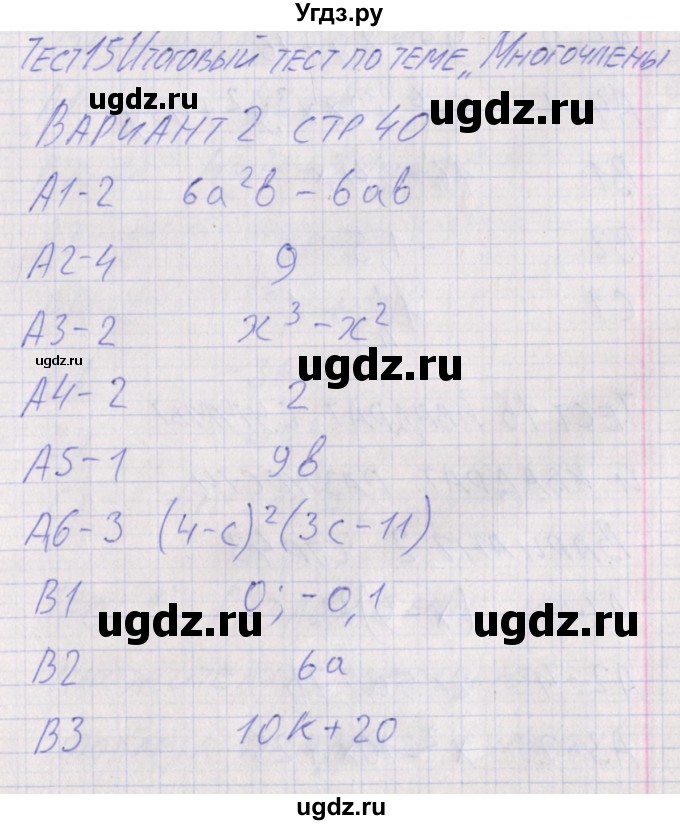 Угдз.ру
ТЕСТ 15 ИТОГОВЫЙ ТЕСТ ПО ТЕМЕ „МНОГОЧЛЕНЫ
ugdz.ru ugdz.ru
ВАРИАНТ 2 СТР 40
А1-2 6a²b - 6ab
А2-4 9
А3-2 x³ - x²
ugdz.ru ugdz.ru
А4-2 2
А5-1 9b
А6-3 (4-c)²(3c-11)
В1 0; -0,1
ugdz.ru ugdz.ru
В2 6a
В3 10k+20
ugdz.ru